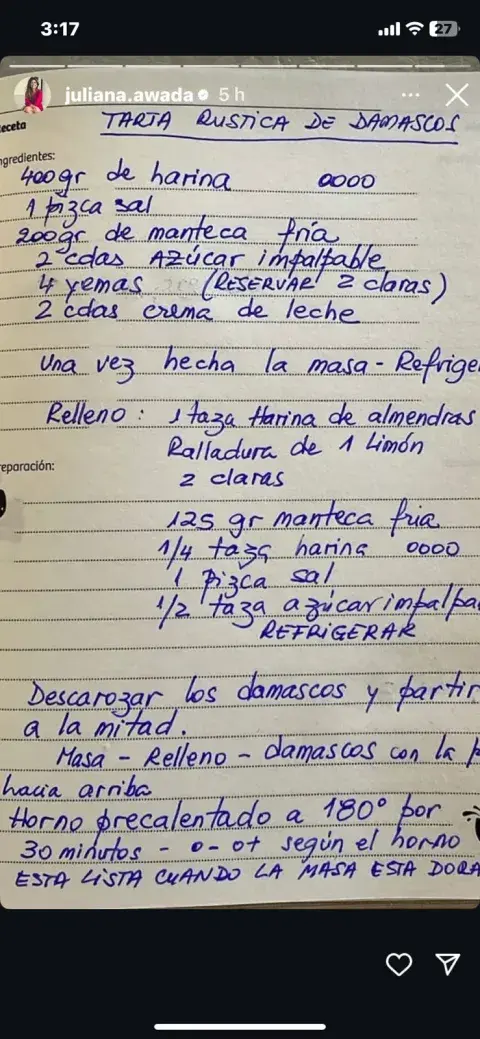 3:17
27
juliana.awada 5 h
eceta
TARTA RUSTICA DE DAMASCOS
ngredientes:
400gr de harina 0000
1 pizca sal
200gr de manteca fría
2 cdas AZÚCAR impalpable
4 yemas (RESERVAR 2 claras)
2 cdas crema de leche
Una vez hecha la masa - Refrige
Relleno: 1 taza Harina de almendras
Ralladura de 1 Limón
eparación:
2 claras
125 gr manteca fria
1/4 taza harina 0000
1 pizca sal
1/2 taza azúcar impalpa
REFRIGERAR
Descarozar los damascos y partir
a la mitad.
Masa - Relleno - damascos con la p
hacia arriba
Horno precalentado a 180° por
30 minutos - o- o+ según el horno
ESTA LISTA CUANDO LA MASA ESTA DORA